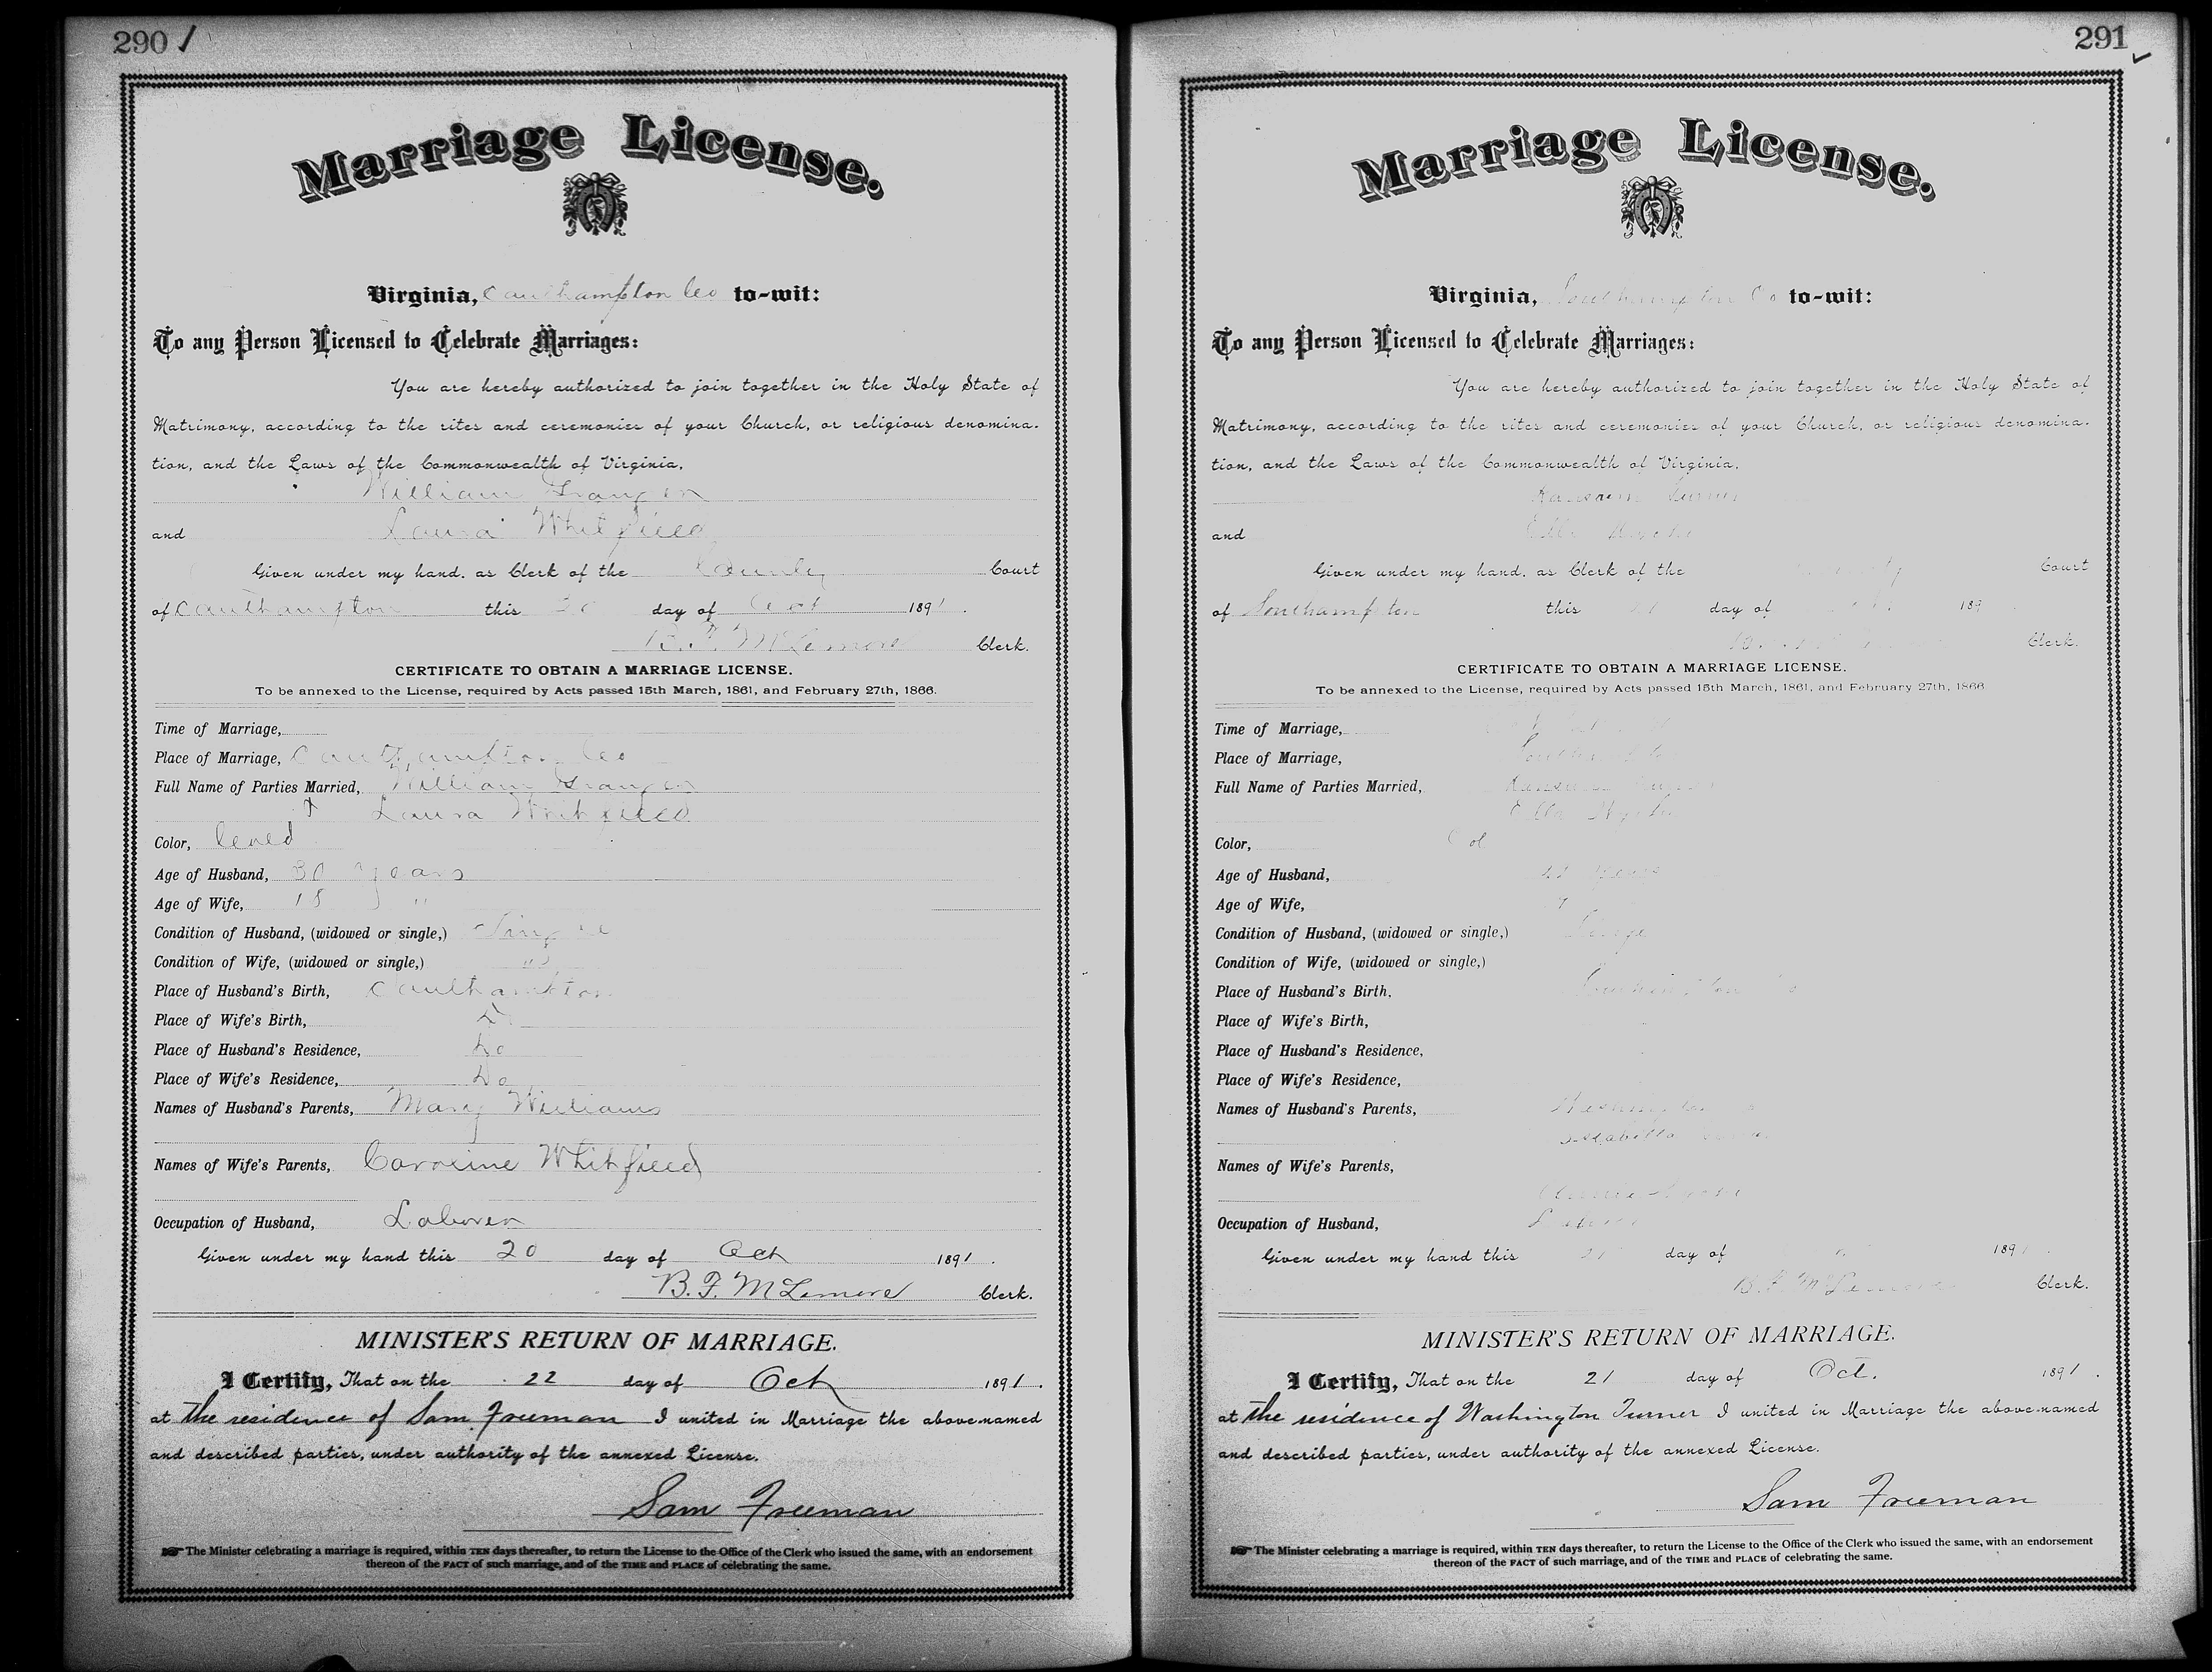 290
Marriage License.
Virginia, Southampton Co to-wit:
To any Person Licensed to Celebrate Marriages:
You are hereby authorized to join together in the Holy State of
Matrimony, according to the rites and ceremonies of your Church, or religious denomina-
tion, and the Laws of the Commonwealth of Virginia,
William
and Laura Whitfield
Given under my hand, as Clerk of the County Court
of Southampton this 20 day of Oct 1891.
B. F. McLemore Clerk.
CERTIFICATE TO OBTAIN A MARRIAGE LICENSE.
To be annexed to the License, required by Acts passed 15th March, 1861, and February 27th, 1866.
Time of Marriage,
Place of Marriage, Southampton Co
Full Name of Parties Married, William
Laura Whitfield
Color, Cold
Age of Husband, 30 years
Age of Wife, 18 "
Condition of Husband, (widowed or single,) Single
Condition of Wife, (widowed or single,)
Place of Husband's Birth, Southampton
Place of Wife's Birth, Do
Place of Husband's Residence, Do
Place of Wife's Residence, Do
Names of Husband's Parents, Mary Williams
Names of Wife's Parents, Caroline Whitfield
Occupation of Husband, Laborer
Given under my hand this 20 day of Oct 1891.
B. F. McLemore Clerk.
MINISTER'S RETURN OF MARRIAGE.
I Certify, That on the 22 day of Oct 1891.
at The residence of Sam Freeman I united in Marriage the above-named
and described parties, under authority of the annexed License.
Sam Freeman
The Minister celebrating a marriage is required, within TEN days thereafter, to return the License to the Office of the Clerk who issued the same, with an endorsement
thereof of the FACT of such marriage, and of the TIME and PLACE of celebrating the same.
291
Marriage License.
Virginia, Southampton Co to-wit:
To any Person Licensed to Celebrate Marriages:
You are hereby authorized to join together in the Holy State of
Matrimony, according to the rites and ceremonies of your Church, or religious denomina-
tion, and the Laws of the Commonwealth of Virginia,
Turner
and Ella
Given under my hand, as Clerk of the Court
of Southampton this day of 189
Clerk.
CERTIFICATE TO OBTAIN A MARRIAGE LICENSE.
To be annexed to the License, required by Acts passed 15th March, 1861, and February 27th, 1866
Time of Marriage,
Place of Marriage,
Full Name of Parties Married,
Ella
Color, Col
Age of Husband, years
Age of Wife,
Condition of Husband, (widowed or single,)
Condition of Wife, (widowed or single,)
Place of Husband's Birth, Southampton
Place of Wife's Birth,
Place of Husband's Residence,
Place of Wife's Residence,
Names of Husband's Parents, Washington
Names of Wife's Parents,
Occupation of Husband, Laborer
Given under my hand this 21 day of 1891.
B. F. McLemore Clerk.
MINISTER'S RETURN OF MARRIAGE.
I Certify, That on the 21 day of Oct. 1891.
at The residence of Washington Turner I united in Marriage the above-named
and described parties, under authority of the annexed License.
Sam Freeman
The Minister celebrating a marriage is required, within TEN days thereafter, to return the License to the Office of the Clerk who issued the same, with an endorsement
thereof of the FACT of such marriage, and of the TIME and PLACE of celebrating the same.